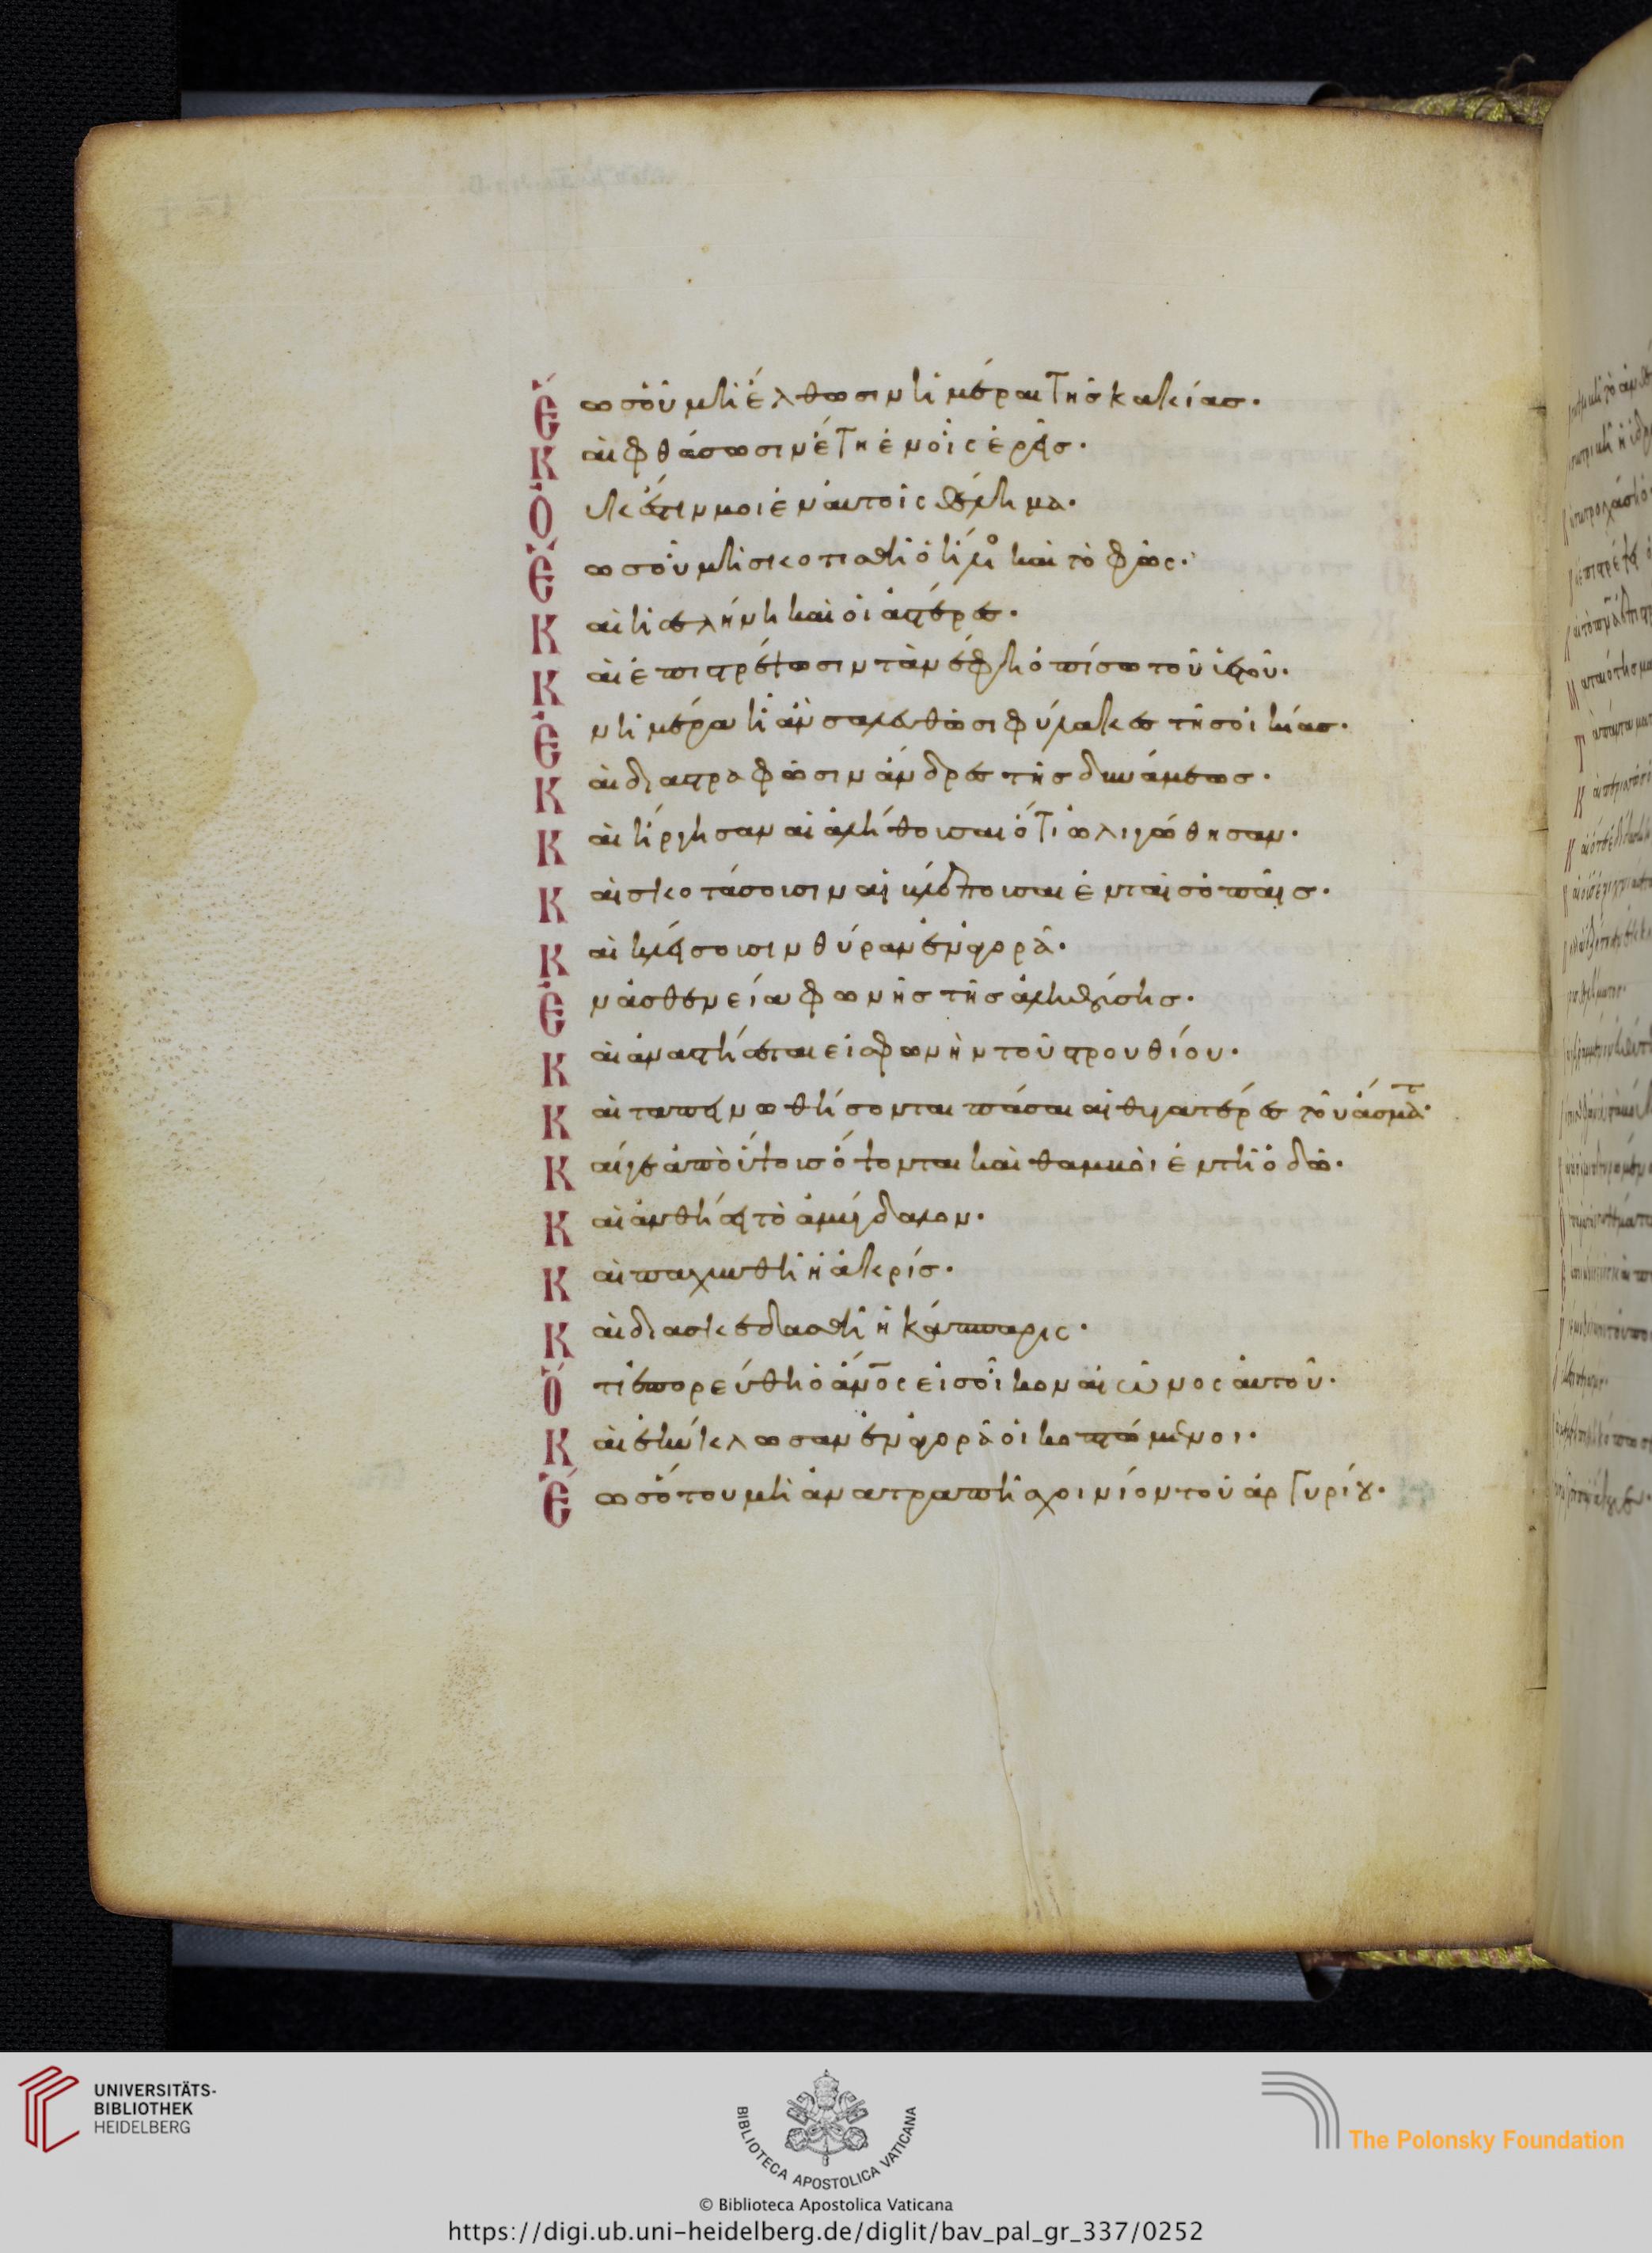 Ἕως οὗ μὴ ἔλθωσιν ἡμέραι τῆς κακίας.
Καὶ φθάσωσιν ἔτη ἐν οἷς ἐρεῖς.
Οὐκ ἔστιν μοι ἐν αὐτοῖς θέλημα.
Ἕως οὗ μὴ σκοτισθῆ ὁ ἥλιος καὶ τὸ φῶς.
Καὶ ἡ σελήνη καὶ οἱ ἀστέρες.
Καὶ ἐπιστρέψωσιν τὰ νέφη ὀπίσω τοῦ ὑετοῦ.
Ἐν ἡμέρα ἧ ἂν σαλευθῶσι φύλακες τῆς οἰκίας.
Καὶ διαστραφῶσιν ἄνδρες τῆς δυνάμεως.
Καὶ ἤργησαν αἱ ἀλήθουσαι ὅτι ὠλιγώθησαν.
Καὶ σκοτάσουσιν αἱ βλέπουσαι ἐν ταῖς ὀπαῖς.
Καὶ κλείσουσιν θύραν ἐν ἀγορᾶ.
Ἐν ἀσθενεία φωνῆς τῆς ἀληθούσης.
Καὶ ἀναστήσεται εἰς φωνὴν τοῦ στρουθίου.
Καὶ ταπεινωθήσονται πᾶσαι αἱ θυγατέρες τοῦ ἄσματ
Καί γε ἀπὸ ὕψους ὄψονται καὶ θαμβοὶ ἐν τῆ ὁδῶ.
Καὶ ἀνθήσει τὸ ἀμύγδαλον.
Καὶ παχυνθῆ ἡ ἀκρίς.
Καὶ διασκεδασθῆ ἡ κάππαρις.
Ὅτι ἐπορεύθη ὁ ἄνος εἰς οἶκον αἰῶνος αὐτοῦ.
Καὶ ἐκύκλωσαν ἐν ἀγορᾶ οἱ κοπτόμενοι.
Ἕως ὅτου μὴ ἀνατραπῆ σχοινίον τοῦ ἀργυρίου.
UNIVERSITÄTS-
BIBLIOTHEK
HEIDELBERG
BIBLIOTECA APOSTOLICA VATICANA
The Polonsky Foundation
© Biblioteca Apostolica Vaticana
https://digi.ub.uni-heidelberg.de/diglit/bav_pal_gr_337/0252